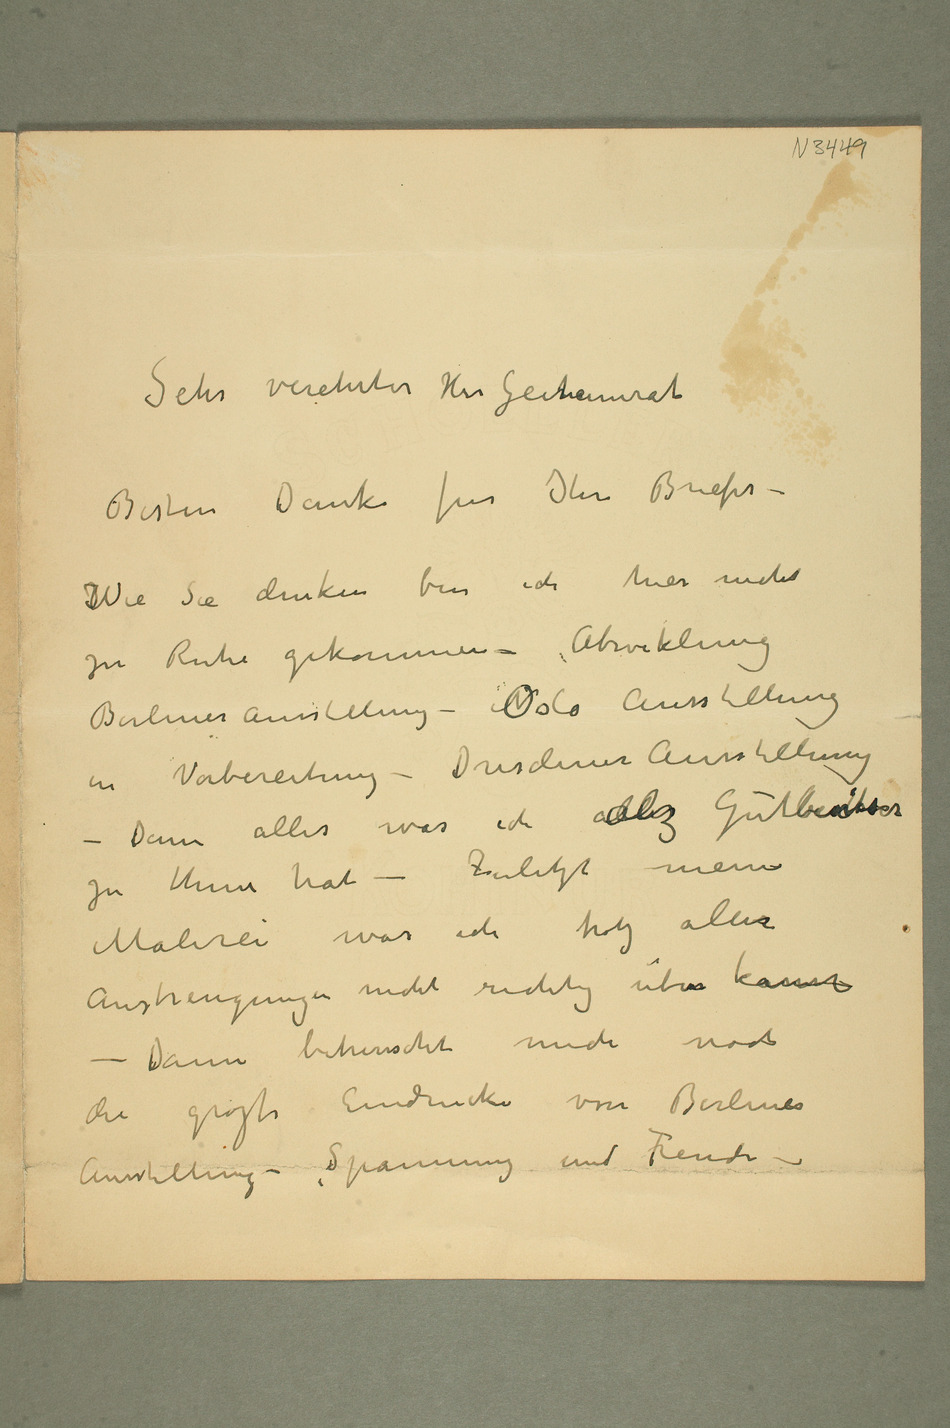 N 3449
Sehr verehrter Herr Geeheimrat
Besten Danke fur Ihre Briefer –
Wie Sie denken bin ich hier nicht
zu Ruhe gekommen – Abviklung
Berliner Ausstellung – Oslo Ausstellung
in Vorbereitung – Dresdener Ausstellung
– Dann alles was ich als Gutbesitzer
zu thun hat – Zuletzt meine
Malerei was ich trotz aller
Anstrengungen nicht richtig über kamt
– Dann beherrscht mich noch
die grozte Eindrucke von Berliner
Ausstellung – Spannung und Freude –